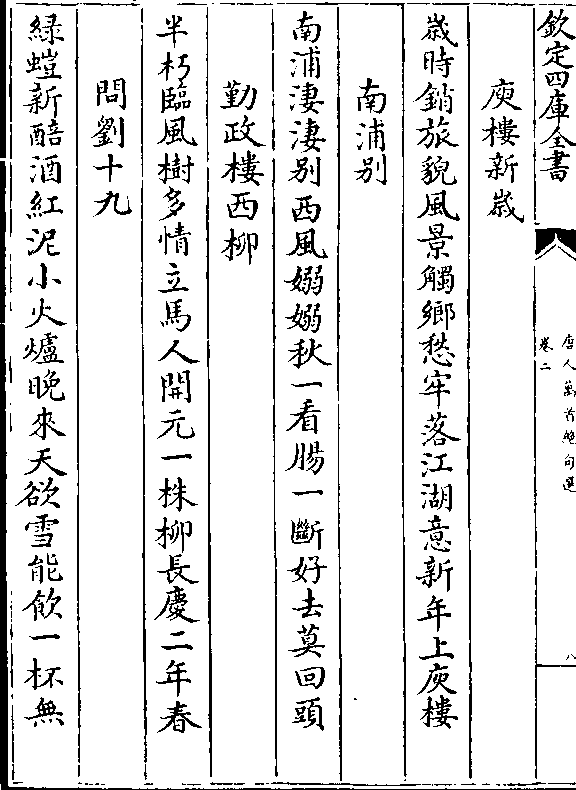 欽定四庫全書
唐人萬首絶句選
卷二
八
庾樓新歲
歲時銷旅貌風景觸鄉愁牢落江湖意新年上庾樓
南浦别
南浦淒淒别西風嫋嫋秋一看腸一斷好去莫回頭
勤政樓西柳
半朽臨風樹多情立馬人開元一株柳長慶二年春
問劉十九
綠螘新醅酒紅泥小火爐晚來天欲雪能飲一杯無